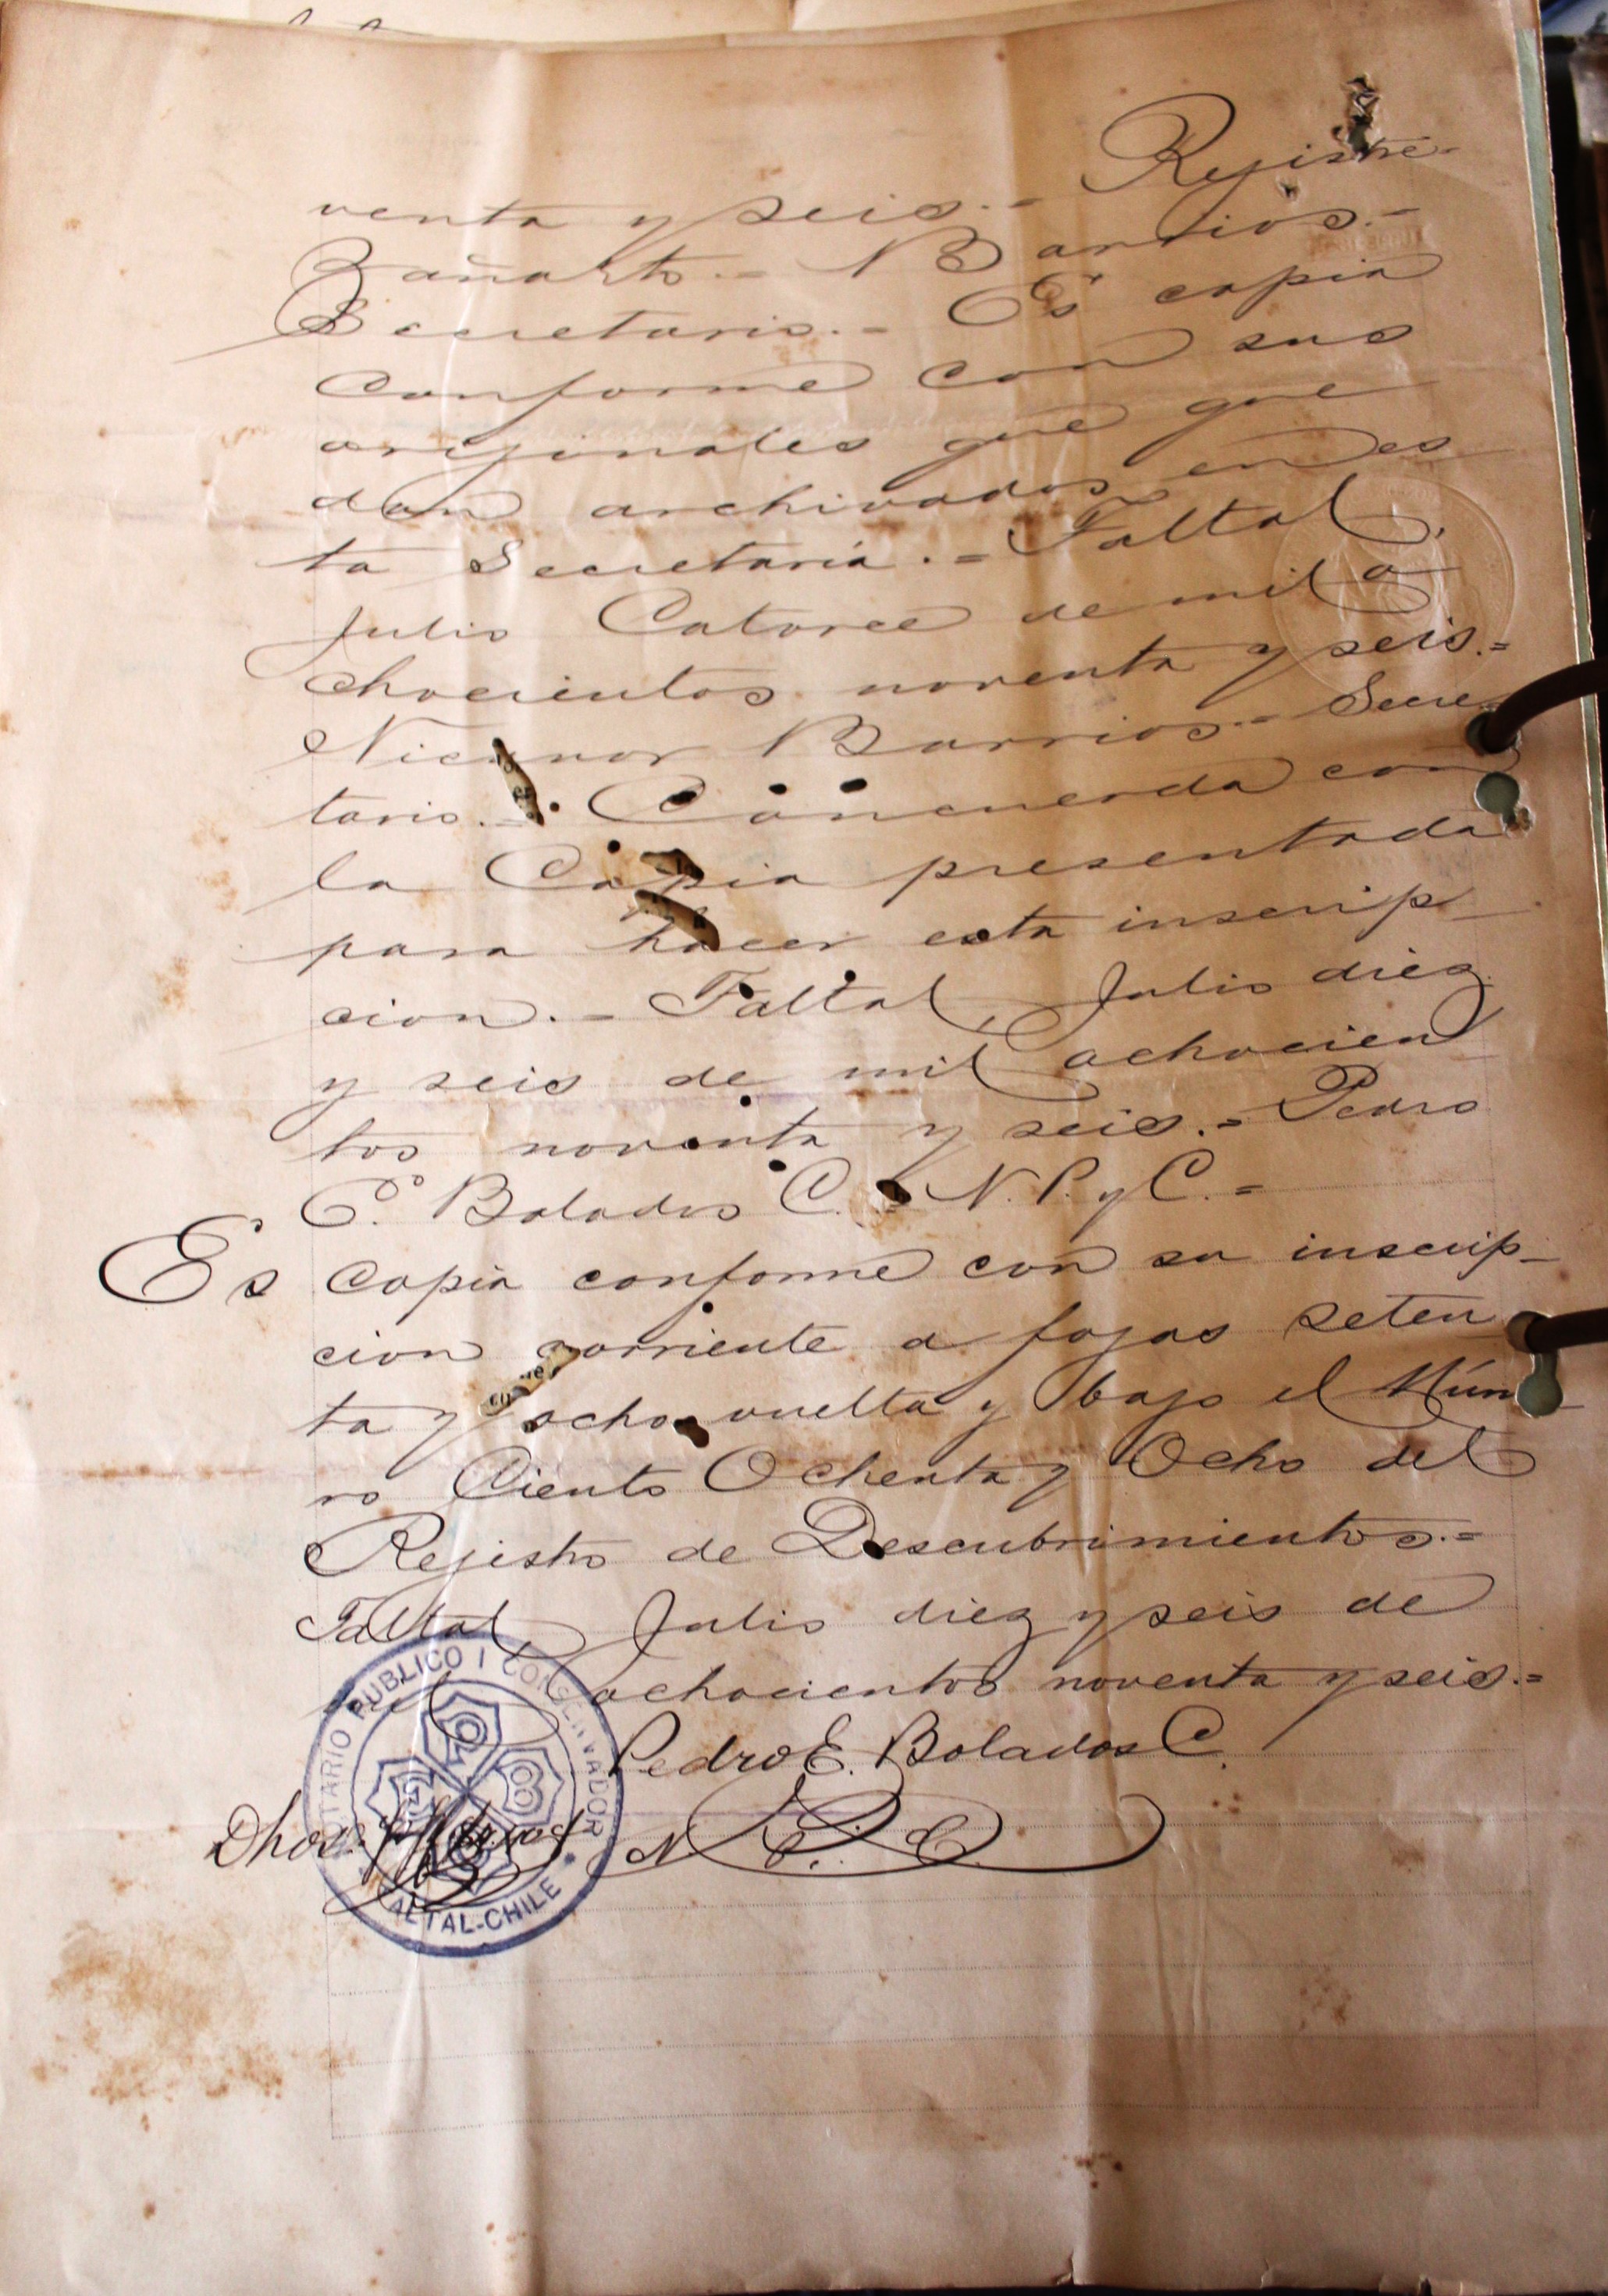 venta y seis.- Rejistre-
Zañarto.- N Barrios.-
Secretario.- Es copia
conforme con sus
orijinales que que
dan archivados en es
ta Secretaría.- Taltal,
Julio Catorce de mil o
chocientos noventa y seis.=
Nicanor Barrios.- Secre-
tario.- Concuerda con
la Copia presentada
para hacer esta inscrip
cion.- Taltal, Julio diez
y seis de mil ochocien
tos noventa y seis.= Pedro
E. Bolados C. N. P. y C.=
Es Copia conforme con su inscrip-
cion corriente a fojas seten
ta y ocho vuelta y bajo el Núm
ro Ciento Ochenta y Ocho del
Rejistro de Descubrimientos.=
Taltal, Julio diez y seis de
mil ochocientos noventa y seis.=
Pedro E. Bolados C.
N P. C.
NOTARIO PUBLICO I CONSERVADOR
TALTAL-CHILE